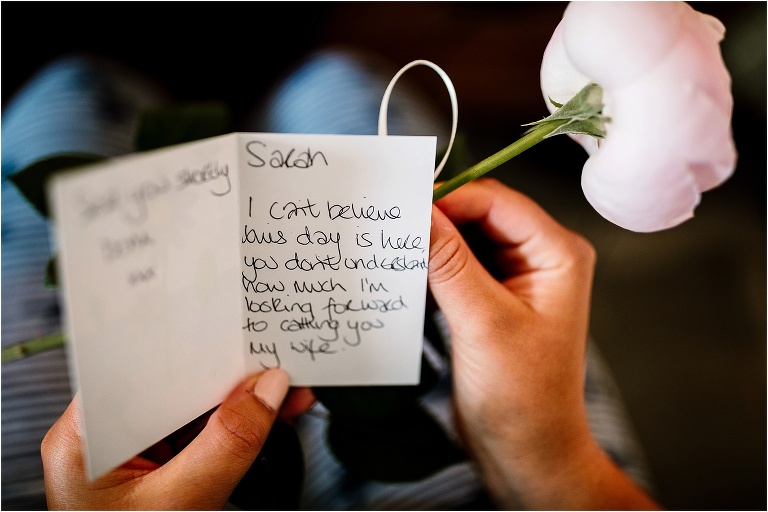 Sarah
I can't believe
this day is here,
you don't understand
how much I'm
looking forward
to calling you
my wife.
you shortly
xx